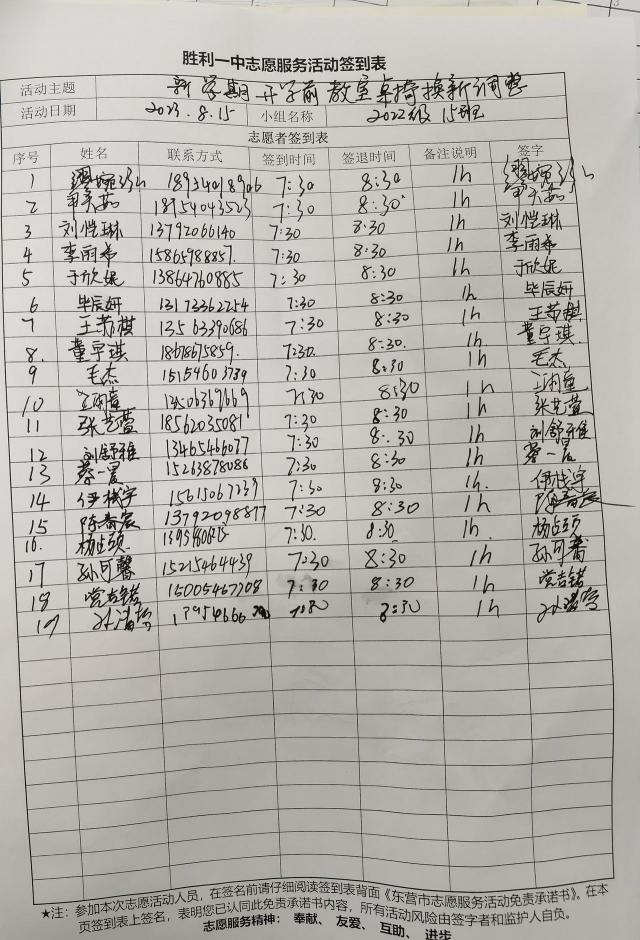 胜利一中志愿服务活动签到表
活动主题 新学期开学前教室桌椅换新调整
活动日期 2023.8.15 小组名称 2022级15班
志愿者签到表
序号 姓名 联系方式 签到时间 签退时间 备注说明 签字
1 18934018906 7:30 8:30 1h
2 18954043523 7:30 8:30 1h
3 刘恺琳 13792066140 7:30 8:30 1h 刘恺琳
4 李雨希 1586598857. 7:30 8:30 1h 李雨希
5 于欣妮 13864760885 7:30 8:30 1h 于欣妮
6 毕辰妍 13173362254 7:30 8:30 1h 毕辰妍
7 王若棋 13563390686 7:30 8:30 1h 王若棋
8. 董宇琪 18678675859. 7:30. 8:30. 1h. 董宇琪
9 毛杰 15154603739 7:30 8:30 1h 毛杰
10 7:30 8:30 1h
11 张艺萱 18562035081 7:30 8:30 1h 张艺萱
12 刘舒雅 13465466077 7:30 8:30 1h 刘舒雅
13 蔡一昌 15263878086 7:30 8:30 1h 蔡一昌
14 伊栈宇 15615067239 7:30 8:30 1h. 伊栈宇
15 陈春宸 13792098877 7:30 8:30 1h 陈春宸
16. 7:30. 8:30 1h.
17 孙可馨 15215464439 7:30 8:30 1h 孙可馨
18 党吉锘 15005467208 7:30 8:30 1h 党吉锘
19 7:30 8:30 1h
★注：参加本次志愿活动人员，在签名前请仔细阅读签到表背面《东营市志愿服务活动免责承诺书》。在本
页签到表上签名，表明您已认同此免责承诺书内容，所有活动风险由签字者和监护人自负。
志愿服务精神： 奉献、 友爱、 互助、 进步